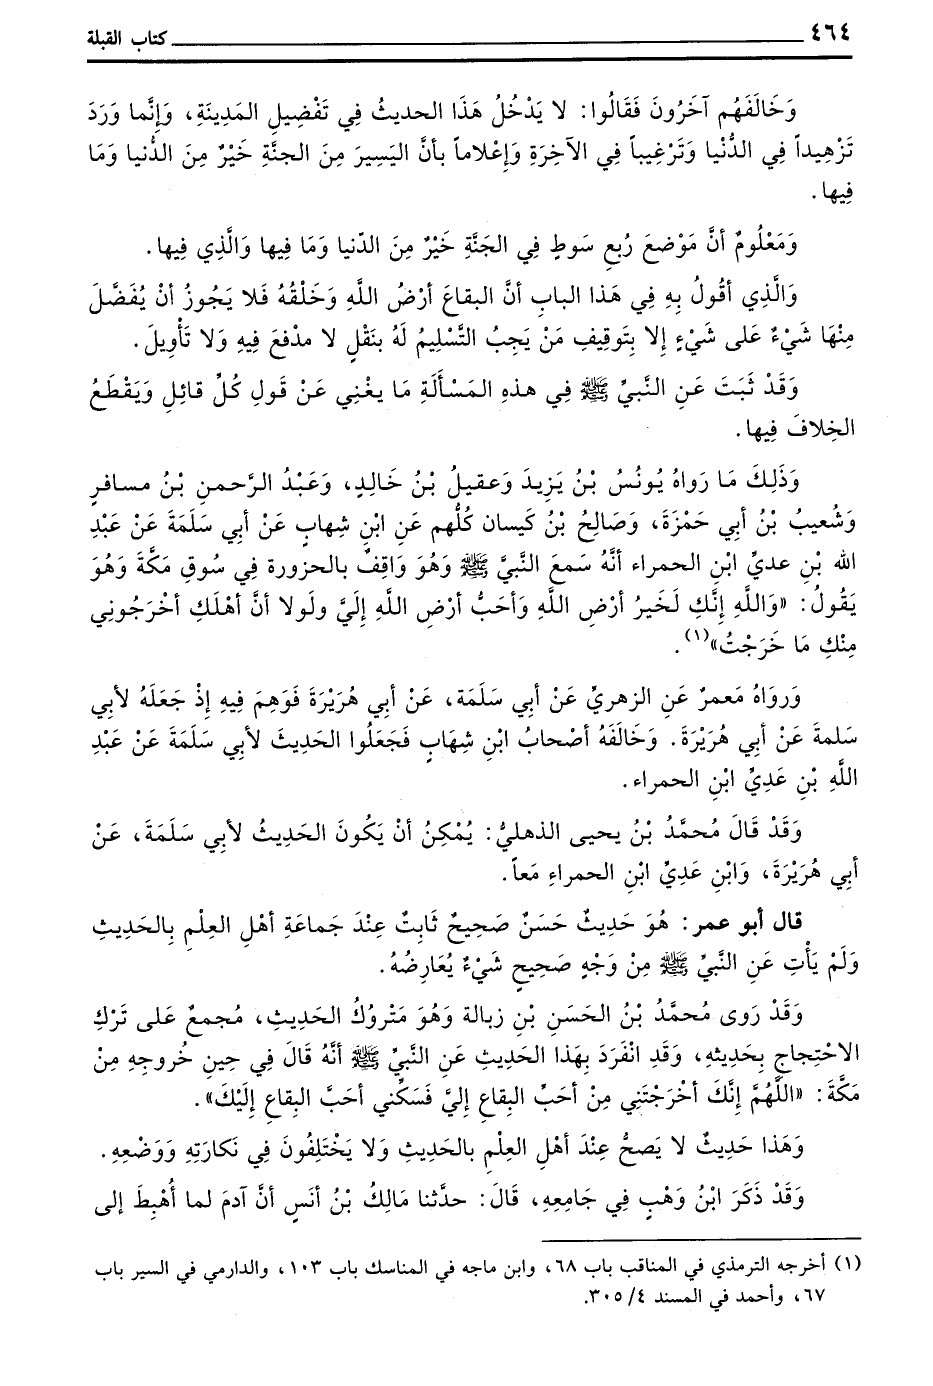 ٤٦٤ كتاب القبلة
وَخَالَفَهُم آخَرُونَ فَقَالُوا: لا يَدْخُلُ هَذَا الحديثُ فِي تَفْضِيلِ المَدِينَةِ، وَإِنَّما وَرَدَ
تَزْهِيداً فِي الدُّنْيا وَتَرْغِيباً فِي الآخِرَةِ وَإِعْلاماً بأنَّ اليَسِيرَ مِنَ الجنَّةِ خَيْرٌ مِنَ الدُّنيا وَمَا
فِيها.
وَمَعْلُومٌ أنَّ مَوْضعَ رُبعِ سَوطٍ فِي الجَنَّةِ خَيْرٌ مِنَ الدّنيا وَمَا فِيها وَالَّذِي فِيها.
وَالَّذِي أقُولُ بِهِ فِي هَذا البابِ أنَّ البقاعَ أرْضُ اللهِ وَخَلْقُهُ فَلا يَجُوزُ أنْ يُفَضَّلَ
مِنْهَا شَيْءٌ عَلى شَيْءٍ إِلا بِتَوقِيفِ مَنْ يَجِبُ التَّسْلِيمُ لَهُ بنَقْلٍ لا مدْفعَ فِيهِ وَلا تَأْوِيلَ.
وَقَدْ ثَبَتَ عَنِ النَّبيِّ ﷺ فِي هذهِ المَسْأَلَةِ مَا يغْنِي عَنْ قَولِ كُلِّ قائِلٍ وَيَقْطَعُ
الخِلافَ فِيها.
وَذَلِكَ مَا رَواهُ يُونُسُ بْنُ يَزِيدَ وَعقيلُ بْنُ خَالِدٍ، وَعَبْدُ الرَّحمنِ بْنُ مسافرٍ
وَشُعيبُ بْنُ أبي حَمْزَةَ، وَصَالِحُ بْنُ كَيسان كُلُّهم عَنِ ابْنِ شِهابٍ عَنْ أبي سَلَمَةَ عَنْ عَبْدِ
الله بْنِ عديِّ ابْنِ الحمراء أنَّهُ سَمعَ النَّبيَّ ﷺ وَهُوَ وَاقِفٌ بالحزورة فِي سُوقِ مَكَّةَ وَهُوَ
يَقُولُ: «وَاللَّهِ إِنَّكِ لَخَيرُ أرْضِ اللَّهِ وَأحَبُّ أرْضِ اللَّهِ إِلَيَّ ولَولا أنَّ أهْلَكِ أخْرَجُونِي
مِنْكِ مَا خَرَجْتُ»(١).
وَرَواهُ مَعمرٌ عَنِ الزهريِّ عَنْ أبي سَلَمَة، عَنْ أبي هُرَيْرَةَ فَوَهِمَ فِيهِ إِذْ جَعَلَهُ لأبي
سَلمةَ عَنْ أبي هُرَيْرَةَ. وَخَالَفَهُ أصْحابُ ابْنِ شِهَابٍ فَجَعَلُوا الحَدِيثَ لأبي سَلَمَةَ عَنْ عَبْدِ
اللَّهِ بْنِ عَدِيِّ ابْنِ الحمراء.
وَقَدْ قَالَ مُحمَّدُ بْنُ يحيى الذهليُّ: يُمْكِنُ أنْ يَكُونَ الحَدِيثُ لأبي سَلَمَةَ، عَنْ
أبي هُرَيْرَةَ، وَابْنِ عَدِيِّ ابْنِ الحمراءِ مَعاً.
قال أبو عمر: هُوَ حَدِيثٌ حَسَنٌ صَحِيحٌ ثَابِتٌ عِنْدَ جَماعَةِ أهْلِ العِلْمِ بِالحَدِيثِ
وَلَمْ يَأْتِ عَنِ النَّبيِّ ﷺ مِنْ وَجْهٍ صَحِيحٍ شَيْءٌ يُعَارِضُهُ.
وَقَدْ رَوى مُحمَّدُ بْنُ الحَسَنِ بْنِ زبالة وَهُوَ مَتْرُوكُ الحَدِيثِ، مُجمعٌ عَلى تَرْكِ
الاحْتِجاجِ بِحَدِيثِهِ، وَقَدِ انْفَرَدَ بِهَذا الحَدِيثِ عَنِ النَّبيِّ ﷺ أنَّهُ قَالَ فِي حِينِ خُروجِهِ مِنْ
مَكَّةَ: «اللَّهُمَّ إِنَّكَ أخْرَجْتَنِي مِنْ أحَبِّ البِقَاعِ إِليَّ فَسَكِّني أحَبَّ البِقاعِ إِلَيْكَ».
وَهَذا حَدِيثٌ لا يَصحُّ عِنْدَ أهْلِ العِلْمِ بالحَدِيثِ وَلا يَخْتَلِفُونَ فِي نَكارَتِهِ وَوَضْعِهِ.
وَقَدْ ذَكَرَ ابْنُ وَهْبٍ فِي جَامِعِهِ، قَالَ: حدَّثنا مَالِكُ بْنُ أنَسٍ أنَّ آدمَ لما أُهْبِطَ إلى
(١) أخرجه الترمذي في المناقب باب ٦٨، وابن ماجه في المناسك باب ١٠٣، والدارمي في السير باب
٦٧، وأحمد في المسند ٤/ ٣٠٥.